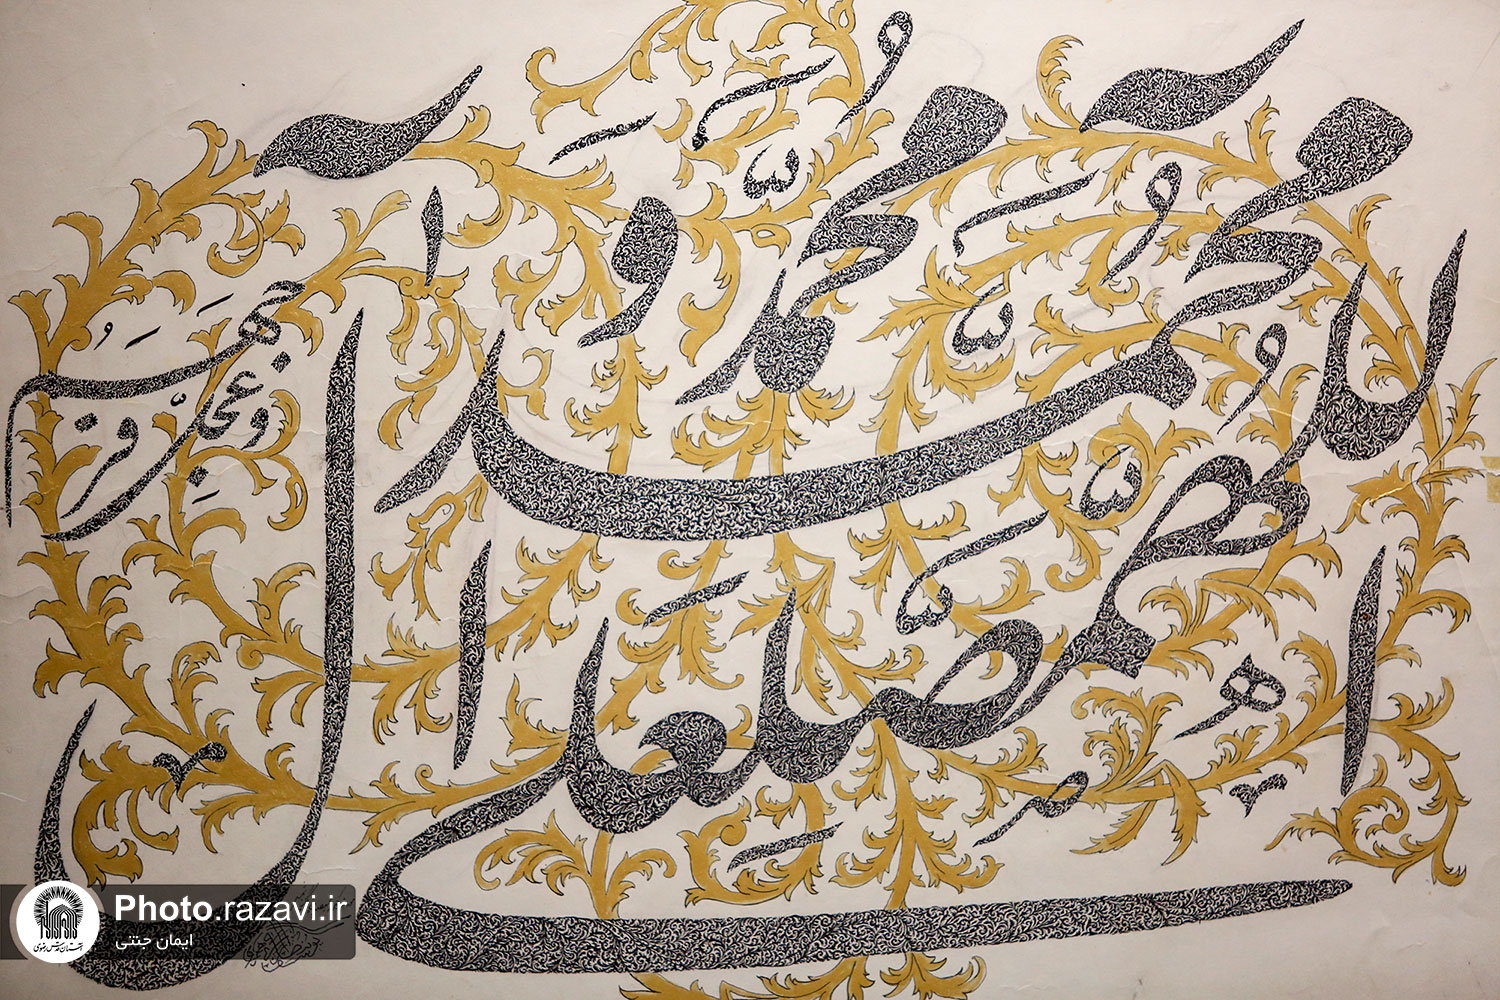 اللهم صل علی
محمد و آل
محمد و آل
محمد
و عجل
فرجهم
Photo.razavi.ir
ایمان جنتی